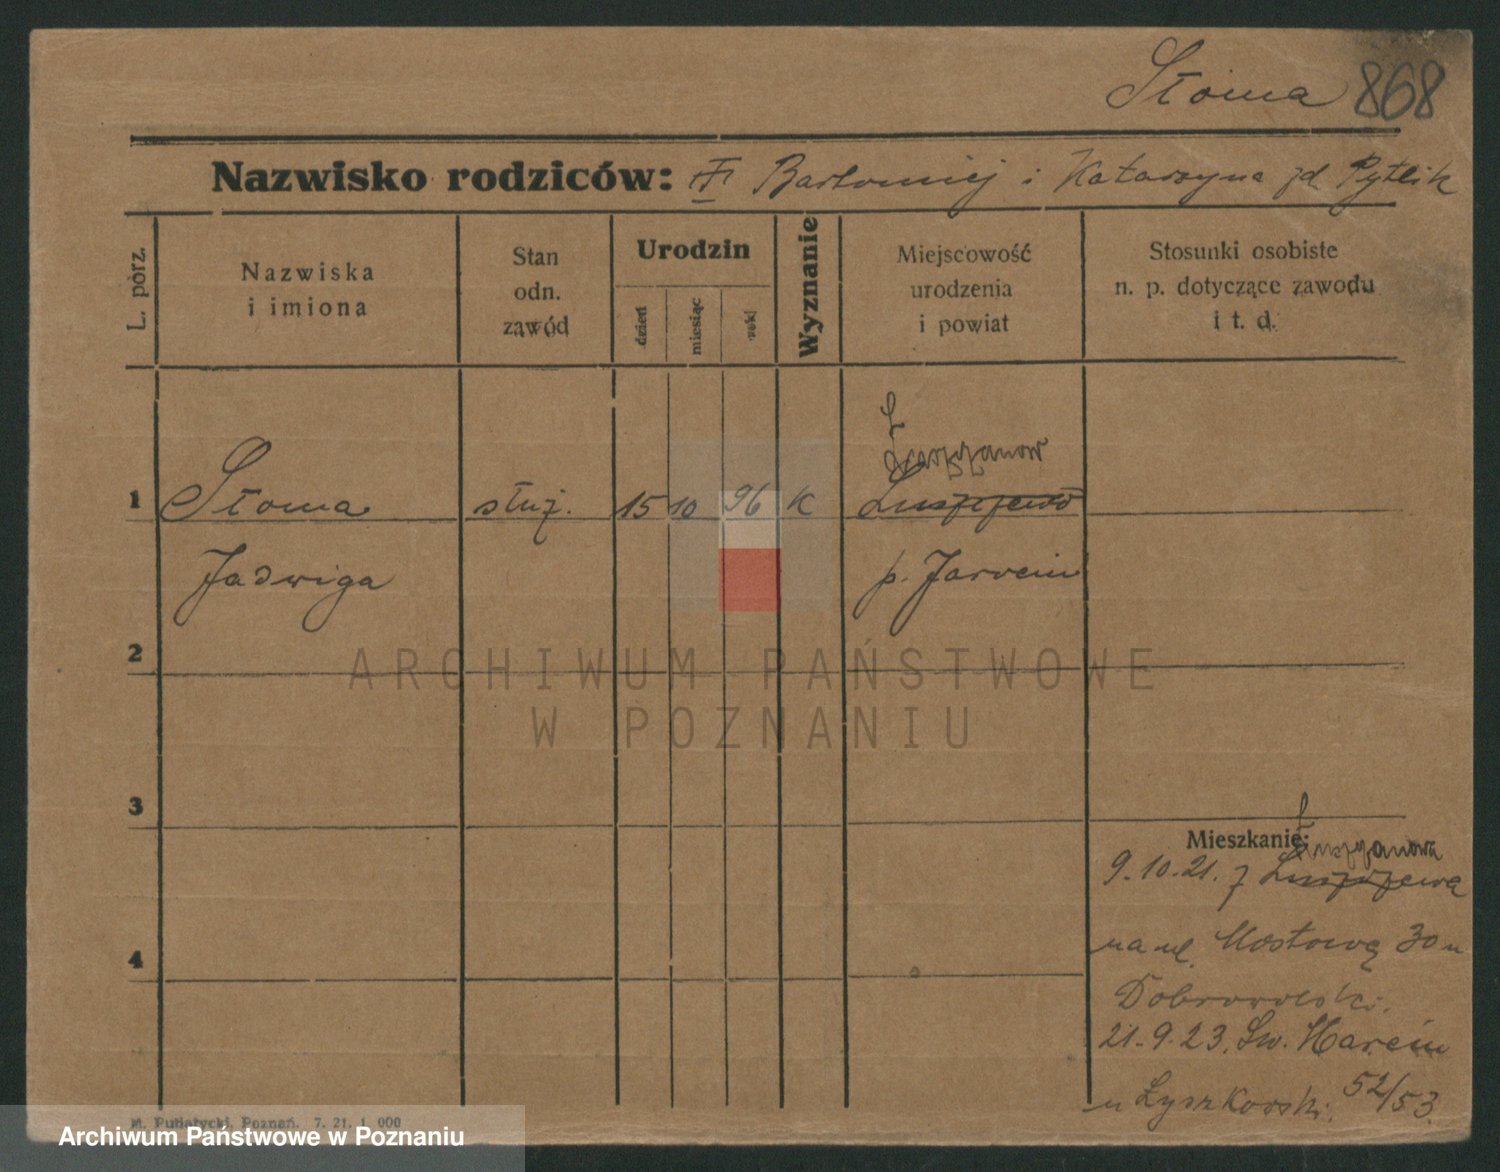 Słoma 868
Nazwisko rodziców: Bartomiej i Katarzyna zd Pytlik
L. porz.
Nazwiska
i imiona
Stan
odn.
zawód
Urodzin
dzień
miesiąc
rok
Wyznanie
Miejscowość
urodzenia
i powiat
Stosunki osobiste
n. p. dotyczące zawodu
i t. d.
1 Słoma służ. 15 10 96 K
Jadwiga p. Jarocin
2
ARCHIWUM PAŃSTWOWE
W POZNANIU
3
Mieszkanie:
9.10.21. z
4
na ul. Mostową 30 u
Dobrowolski.
21.9.23. Św. Marcin
u Łyszkowski. 52/53.
M. Putiatycki, Poznań. 7. 21. 1 000
Archiwum Państwowe w Poznaniu